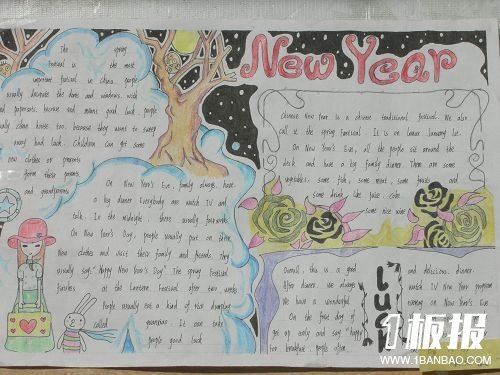 New Year
The spring
Festival is the most
important festival in China. people
usually decorate the doors and windows with
red papercuts. because red means good luck. people
usually clean house too. because they want to sweep
away bad luck. Children can get some
new clothes or presents
form these parents
and grandparents
On New Year's Eve, family always have
a big dinner. Everybody are watch TV and
talk. In the midnight, there usually fireworks
On New Year's Day, people usually put on their
New clothes and visit their family and friends. They
usually says: "Happy New Year's Day." The spring Festival
finishes at the Lantern Festival after two weeks.
People usually eat a kind of rice dumpling
called yuanxiao. It can take
people good luck
Chinese New Year is a Chinese traditional festival. We also
call it the spring Festival. It is on lunar January 1st.
On New Year's Eve, all the people sit around the
desk and have a big family dinner. There are some
vegetables, some fish, some meat, some fruits and
some drink like juice Coke.
some nice wine
Overall, this is a good and delicious dinner.
After dinner, we always watch TV New Year program
We have a wonderful evening on New Year's Eve
On the first day of
get up early and say "happy
For breakfast, people often
luck
1板报
WWW.1BANBAO.COM